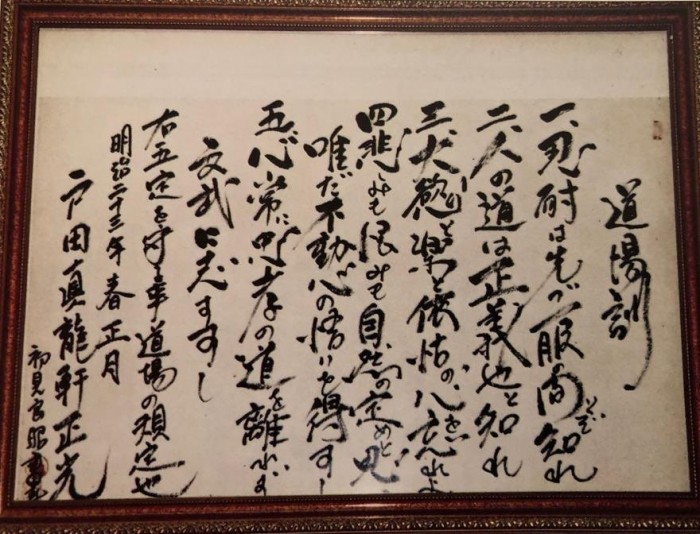 道場訓
一、忍耐は先づ一服の間と知れ
二、人の道は正義也と知れ
三、大慾と楽と依怙の心を忘れよ
四、悲しみも恨みも自然の定めと思い
唯だ不動心の悟りを得すべし
五、心常に忠孝の道を離れず
文武に志すべし
右五定を守る事道場の規定也
明治二十三年春正月
戸田真龍軒正光
初見良昭